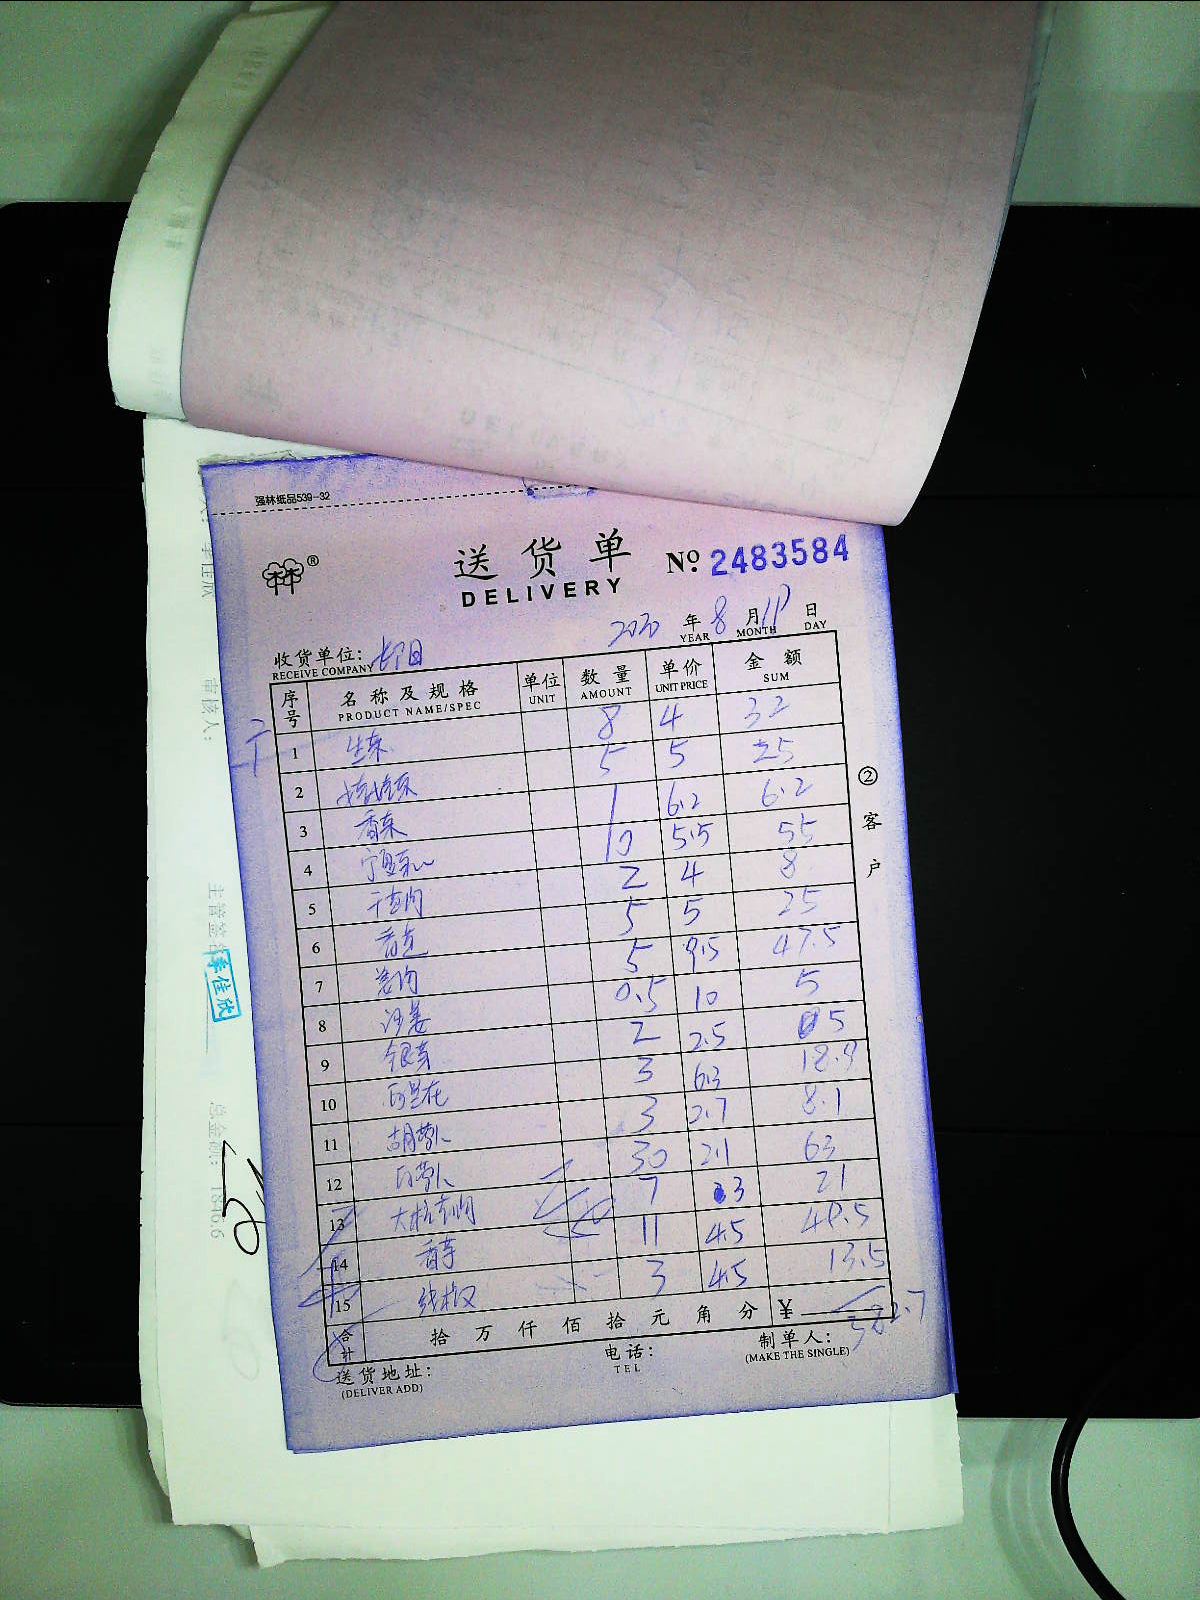 强林纸品539-32
® 送货单 № 2483584
DELIVERY
2020 年 8 月 11 日
YEAR MONTH DAY
收货单位:
RECEIVE COMPANY
序号 名称及规格 单位 数量 单价 金额
PRODUCT NAME/SPEC UNIT AMOUNT UNIT PRICE SUM
1 生菜 8 4 32
2 5 5 25
3 香菜 1 6.2 6.2
4 10 5.5 55
5 2 4 8
6 5 5 25
7 5 9.5 47.5
8 沙姜 0.5 10 5
9 银芽 2 2.5 5
10 3 6.3 18.9
11 胡萝卜 3 2.7 8.1
12 白萝卜 30 2.1 63
13 7 3 21
14 香芋 11 4.5 49.5
15 线椒 3 4.5 13.5
合计 拾 万 仟 佰 拾 元 角 分 ¥ 382.7
送货地址: 电话: 制单人:
(DELIVER ADD) TEL (MAKE THE SINGLE)
②客户
审核人:
主管签
李佳欣
总金额: 1846.6